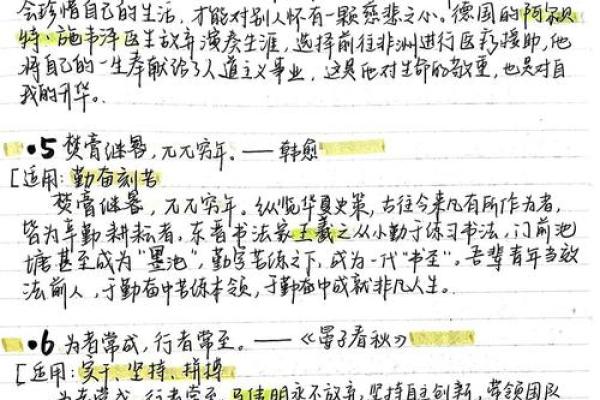 会珍惜自己的生活，才能对别人怀有一颗慈悲之心。德国的阿尔贝
特·施韦泽医生放弃演奏生涯，选择前往非洲进行医疗援助，他
将自己的一生奉献给了人道主义事业，这是他对生命的敬重，也是对自
我的升华。
•5 焚膏继晷，兀兀穷年。——韩愈
[适用：勤奋刻苦
焚膏继晷，兀兀穷年。纵览华夏史策，古往今来凡有所作为者，
皆为辛勤耕耘者。东晋书法家王羲之从小勤于练习书法，门前池
塘甚至成为“墨池”，勤学苦练之下，成为一代“书圣”。吾辈青年当效
法前人，于勤奋中苦练本领，于勤奋中成就非凡人生。
•6 为者常成，行者常至。——《晏子春秋》
[适用：实干、坚持、拼搏
为者常成，行者常至。马伟明永不放弃，坚持自主创新，带领团队